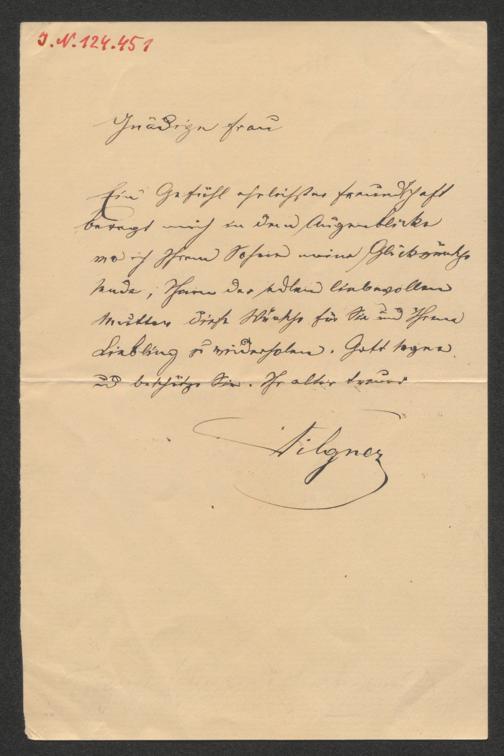 J.N. 124.451
Gnädige Frau
Ein Gefühl ehrlichster Freundschaft
bewegt mich in dem Augenblicke
wo ich Ihrem Sohne meine Glückwünsche
sende, Ihnen der edlen liebevollen
Mutter diese Wünsche für Sie und Ihren
Liebling zu wiederholen. Gott segne
und beschütze Sie. Ihr alter treuer
Tilgner